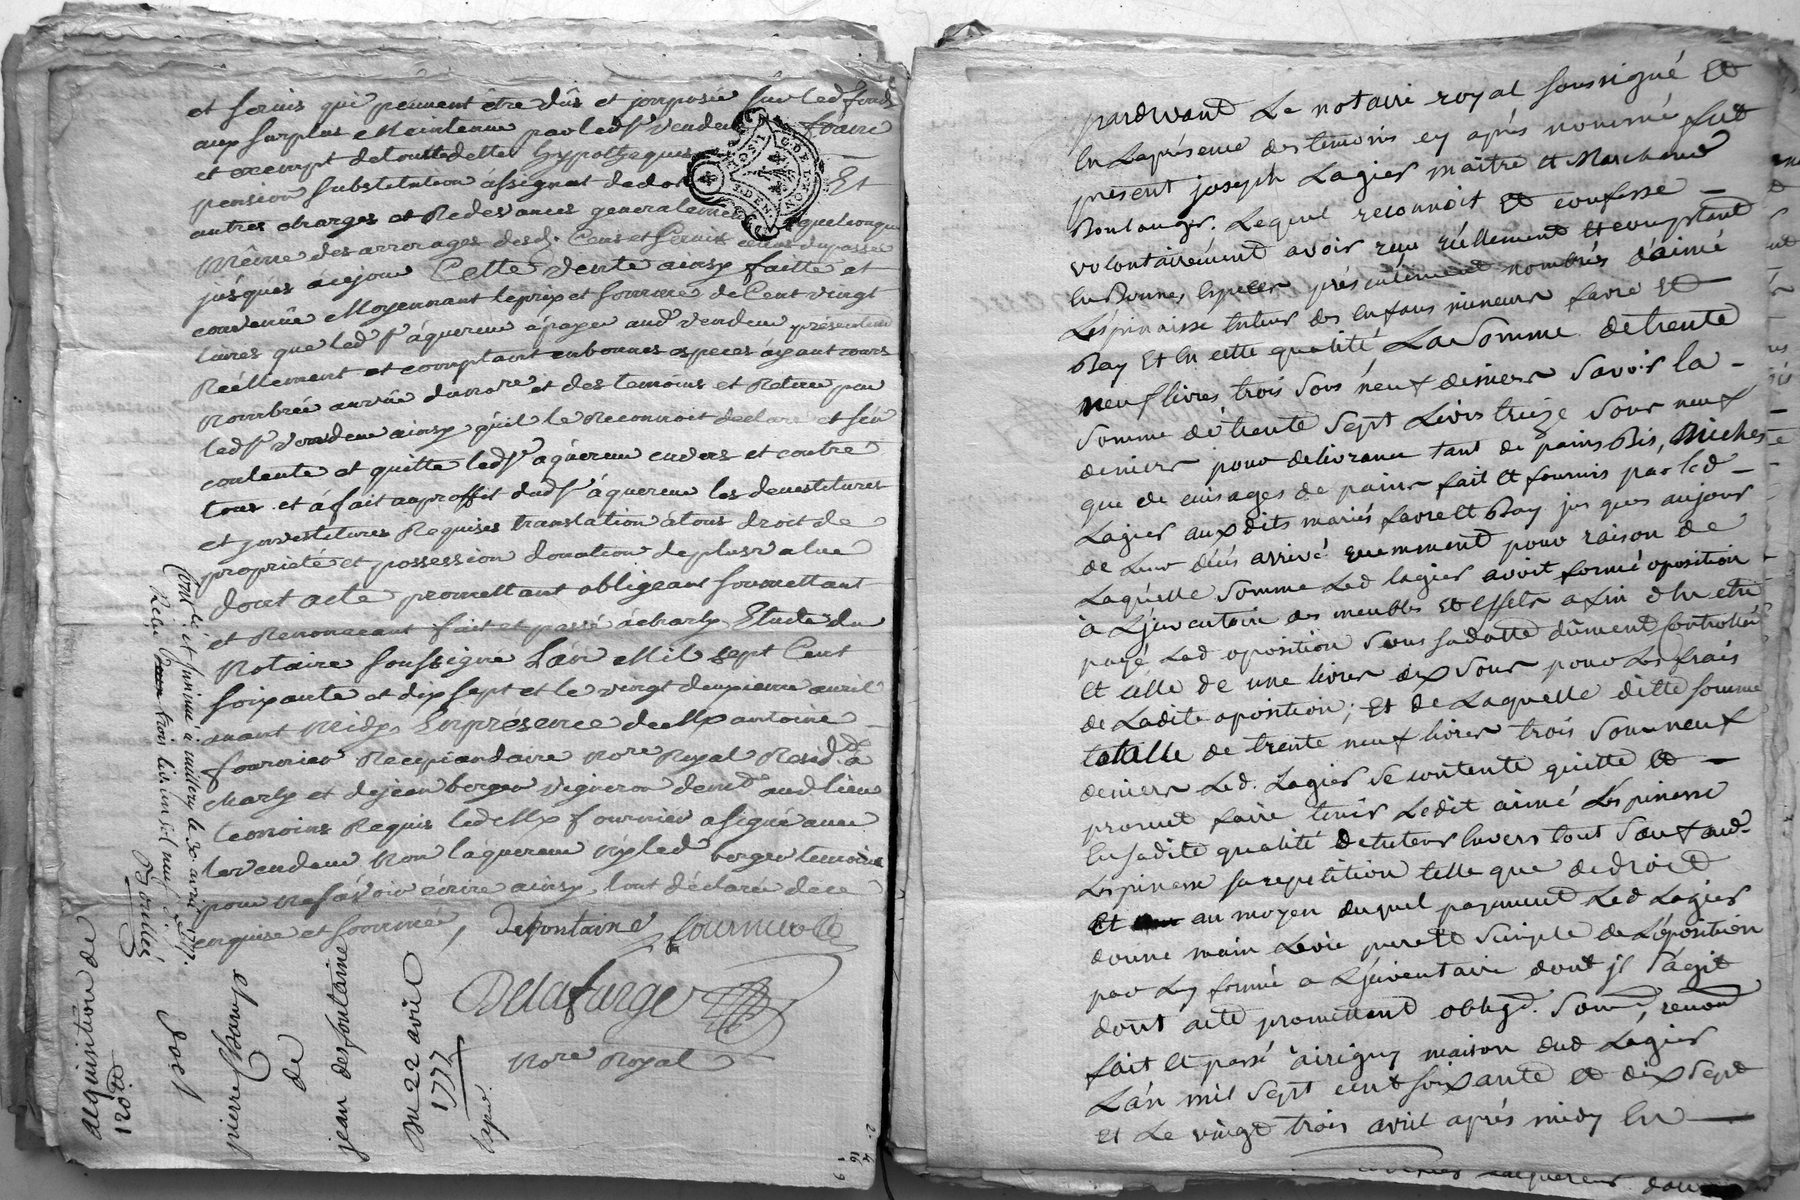 et servis qui peuvent être dûs et jmposée sur led. fonds
aux surplus Maintenue par led. Sr. Vendeur franc
et exempt de toutte dettes hypotheques
pension substitution assignat de dot Et
autres charges et Redevances generalement quelconque
Même des arrerages desd. Cens et Servis
jusqués àcejour Cette Vente ainsy faitte et
convenüe Moyennant leprix et somme de Cent vingt
livres que led. Sr. áquereur á payée aud. Vendeur présentement
Réellement et comptant enbonnes especes áyant cours
Nombrée du nore. et des temoins et Retirée par
led. Sr. Vendeur ainsy qu'il le Reconnoit declare et sén
contente et quitte led. Sr. áquereur envers et contre
tous et á fait auproffit dud. Sr. áquereur les devestitures
et jnvestitures Requises translation átous droit de
proprieté et possession donation de plusvalue
dont acte promettant obligeant soumettant
et Renonceant fait et passé ácharly Etude du
Notaire soussigné Lán Mil sept Cent
soixante et dix sept et le vingt deuxieme avril
avant Midy Enprésence de Me antoine
fournier Récipiendaire Nore. Royal Resid. á
charly et dejean berger vigneron demt. aud. lieu
temoins Requis led. Me fournier a signé avec
le vendeur Non láquereur Ny led. berger temoins
pour Ne sávoir écrire ainsy quont déclaré de ce
enquis et sommé, Defontaine fournier
Delafarge
Nore. Royal
Controlé et insinué à millery le 30 avril 1777.
Recu trois livres un sol neuf d.
acquisition de
120 tt
pierre
de
jean desfontaine
Du 22 avril
1777
pardevant Le notaire royal soussigné Et
En Laprésence des temoins cy après nommé fut
présent joseph Lagier maitre Et Marchand
Boulanger. Lequel reconnoit Et confesse
volontairément avoir reçu réellement Et comptant
En Bonnes Especes présentement nombrés d'aimé
Lespinasse tuteur des Enfans mineurs favre Et
Bay Et En cette qualité La Somme de trente
neuf livres trois Sous neuf deniers Savoir la
Somme de trente Sept Livres treize Sous neuf
deniers pour delivrance tant de pains Bis, Miches
que de cuisages de pains fait Et fournis par led.
Lagier aux dits mariés favre Et Bay jus ques aujour
de Leur décés arrivé pour raison de
Laquelle Somme Led. lagier avoit formé oposition
à L'jnventaire des meubles Et Effets afin d'en etre
payé Led. oposition Sous sadatte düment Controllée
Et celle de une livre dix Sous pour Les frais
de Ladite oposition; Et de Laquelle ditte somme
totalle de trente neuf livres trois Sous neuf
deniers Led. Lagier Se contente quitte Et
promet faire tenir Ledit aimé Lespinasse
En sadite qualité de tuteur Envers tout Sauf aud.
Lespinasse sa repetition telle que de droit
Et au moyen duquel payement Led. Lagier
donne main Levée pure Et Simple de L'oposition
par Luy formé a L'jnventaire dont jl Sagit
dont acte promettant obligt. Soum, renont
fait Et passé à irigny maison dud. Lagier
Lán mil Sept cent Soixante Et dix Sept
Et Le vingt trois avril après midy En